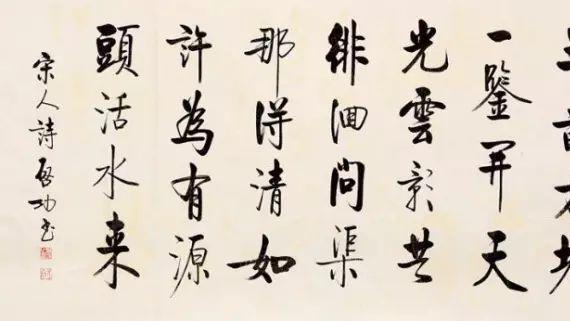 一鑒開天
光雲影共
徘徊問渠
那得清如
許為有源
頭活水来
宋人詩啓功書